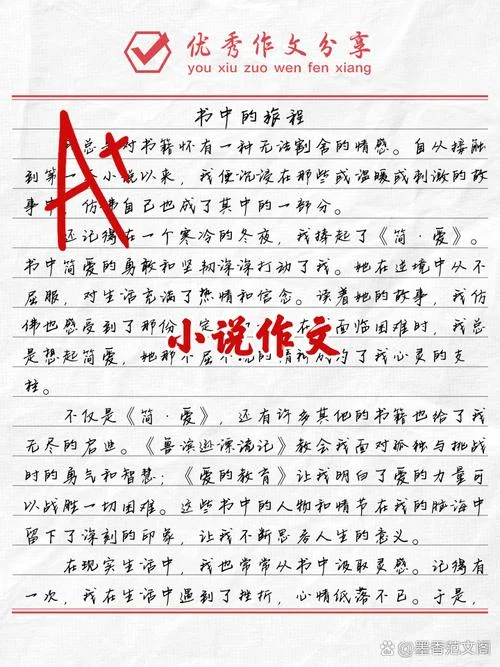 优秀作文分享
you xiu zuo wen fen xiang
书中的旅程
A+
总是对书籍怀有一种无法割舍的情感。自从接触
到第一个小说以来，我便沉浸在那些或温暖或刺激的故
事中，仿佛自己也成了其中的一部分。
还记得在一个寒冷的冬夜，我捧起了《简·爱》。
书中简爱的勇敢和坚韧深深打动了我。她在逆境中从不
屈服，对生活充满了热情和信念。读着她的故事，我仿
佛也感受到了那份定在面临困难时，我总
小说作文
是想起简爱，她那不屈不挠的精神成为了我心灵的支
柱。
不仅是《简·爱》，还有许多其他的书籍也给了我
无尽的启迪。《鲁滨逊漂流记》教会我面对孤独与挑战
时的勇气和智慧；《爱的教育》让我明白了爱的力量可
以战胜一切困难。这些书中的人物和情节在我的脑海中
留下了深刻的印象，让我不断思考人生的意义。
在现实生活中，我也常常从书中汲取灵感。记得有
一次，我在生活中遇到了挫折，心情低落不已。于是，
墨香范文阁